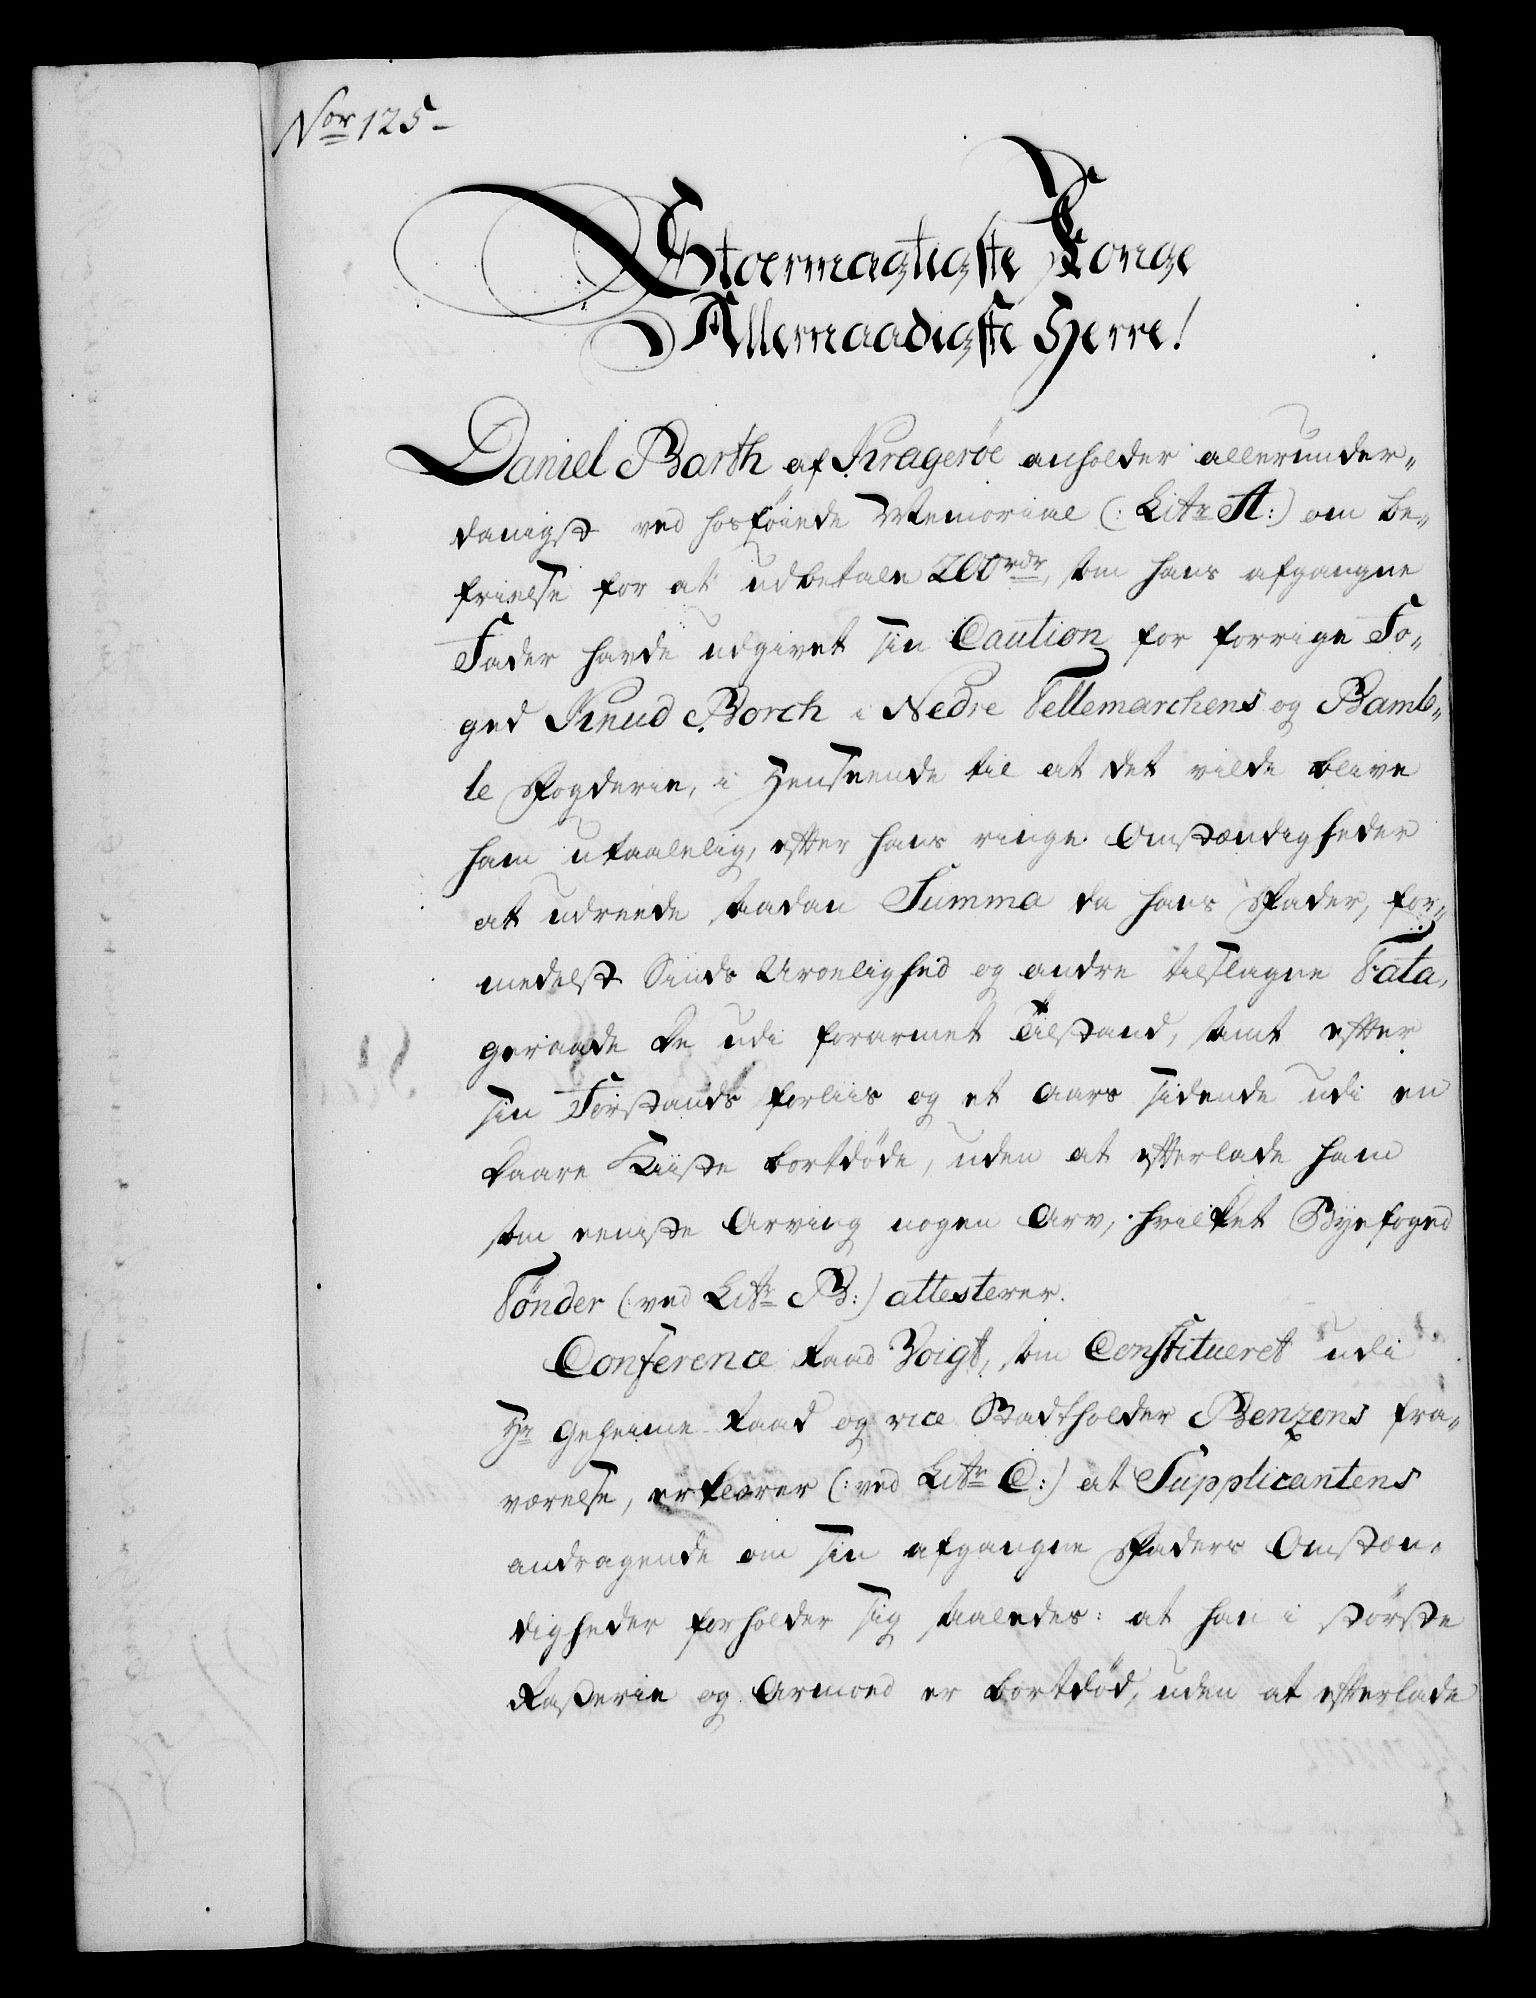 Nor 125-
Stormagtigste Konge
Allernaadigste Herre!
Daniel Barth af Kragerøe anholder allerunder„
danigst ved hosføiede Memorial (: Litr A:) om be„
frielse for at udbetale 200 rdr, som hans afgangne
Fader havde udgivet sin Caution for forrige Fo„
ged Knud Borch i Nedre Tellemarchens og Bamb„
le Fogderie, i Henseende til at det vilde blive
ham utaalelig, efter hans ringe Omstændigheder
at udreede saadan Summa da hans Fader, for„
medelst Sinds Uroelighed og andre tilslagne Fata,
geraade udi forarmet Tilstand, samt efter
sin Forstands forliis og et Aars sidende udi en
daare Kiiste bortdøde, uden at efterlade ham
som eeniste Arving nogen Arv, hvilket Byefoged
Tønder (: ved Litr B:) attesterer.
Conference Raad Voigt, som Constitueret udi
Hr Geheime Raad og vice Stadtholder Benzons fra„
værelse, erklærer (: ved Litr C:) at Supplicantens
andragende om sin afgangne Faders Omstæn„
digheder forholder sig saaledes: at han i største
Raserie og Armoed er bortdød, uden at efterlade